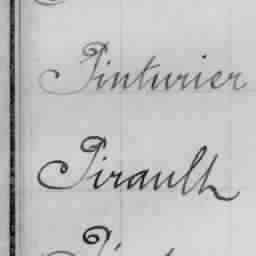 Pinturier
Pirault